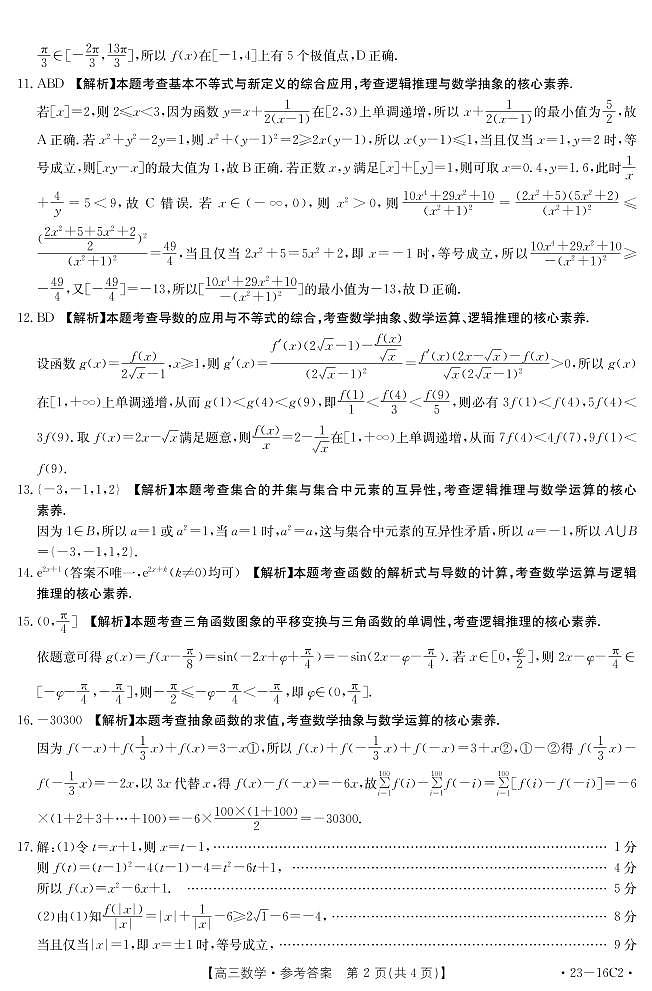 π/3∈[-2π/3,13π/3],所以 f(x)在[-1,4]上有 5 个极值点,D正确.
11. ABD 【解析】本题考查基本不等式与新定义的综合应用,考查逻辑推理与数学抽象的核心素养.
若[x]=2,则 2≤x<3,因为函数 y=x+1/(2(x-1))在[2,3)上单调递增,所以 x+1/(2(x-1))的最小值为5/2,故
A正确. 若 x²+y²-2y=1,则 x²+(y-1)²=2≥2x(y-1),所以 x(y-1)≤1,当且仅当 x=1,y=2 时,等
号成立,则[xy-x]的最大值为1,故B正确. 若正数 x,y 满足[x]+[y]=1,则可取 x=0.4,y=1.6,此时1/x
+4/y=5<9,故 C 错误. 若 x∈(-∞,0),则 x²>0,则 (10x⁴+29x²+10)/(x²+1)²=(2x²+5)(5x²+2)/(x²+1)²≤
((2x²+5+5x²+2)/2)²/(x²+1)²=49/4,当且仅当 2x²+5=5x²+2,即 x=-1 时,等号成立,所以(10x⁴+29x²+10)/(-(x²+1)²)≥
-49/4,又[-49/4]=-13,所以[(10x⁴+29x²+10)/(-(x²+1)²)]的最小值为-13,故 D正确.
12. BD 【解析】本题考查导数的应用与不等式的综合,考查数学抽象、数学运算、逻辑推理的核心素养.
设函数 g(x)=f(x)/(2√x-1),x≥1,则 g′(x)=(f′(x)(2√x-1)-f(x)/√x)/(2√x-1)²=(f′(x)(2x-√x)-f(x))/(√x(2√x-1)²)>0,所以 g(x)
在[1,+∞)上单调递增,从而 g(1)<g(4)<g(9),即f(1)/1<f(4)/3<f(9)/5,则必有 3f(1)<f(4),5f(4)<
3f(9). 取 f(x)=2x-√x满足题意,则f(x)/x=2-1/√x在[1,+∞)上单调递增,从而 7f(4)<4f(7),9f(1)<
f(9).
13. {-3,-1,1,2} 【解析】本题考查集合的并集与集合中元素的互异性,考查逻辑推理与数学运算的核心
素养.
因为 1∈B,所以 a=1 或 a²=1,当 a=1 时,a²=a,这与集合中元素的互异性矛盾,所以 a=-1,所以 A∪B
={-3,-1,1,2}.
14. e²ˣ⁺¹(答案不唯一,e²ˣ⁺ᵏ(k≠0)均可) 【解析】本题考查函数的解析式与导数的计算,考查数学运算与逻辑
推理的核心素养.
15. (0,π/4] 【解析】本题考查三角函数图象的平移变换与三角函数的单调性,考查逻辑推理的核心素养.
依题意可得 g(x)=f(x-π/8)=sin(-2x+φ+π/4)=-sin(2x-φ-π/4). 若 x∈[0,φ/2],则 2x-φ-π/4∈
[-φ-π/4,-π/4],则-π/2≤-φ-π/4<-π/4,即 φ∈(0,π/4].
16. -30300 【解析】本题考查抽象函数的求值,考查数学抽象与数学运算的核心素养.
因为 f(-x)+f(1/3x)+f(x)=3-x①,所以 f(x)+f(-1/3x)+f(-x)=3+x②,①-②得 f(1/3x)-
f(-1/3x)=-2x,以 3x 代替 x,得 f(x)-f(-x)=-6x,故∑(i=1→100)f(i)-∑(i=1→100)f(-i)=∑(i=1→100)[f(i)-f(-i)]=-6
×(1+2+3+…+100)=-6×100×(1+100)/2=-30300.
17. 解:(1)令 t=x+1,则 x=t-1, …… 1 分
则 f(t)=(t-1)²-4(t-1)-4=t²-6t+1, …… 4 分
所以 f(x)=x²-6x+1. …… 5 分
(2)由(1)知f(|x|)/|x|=|x|+1/|x|-6≥2√1-6=-4, …… 8 分
当且仅当|x|=1,即 x=±1 时,等号成立, …… 9 分
【高三数学·参考答案 第 2 页(共 4 页)】 ·23-16C2·